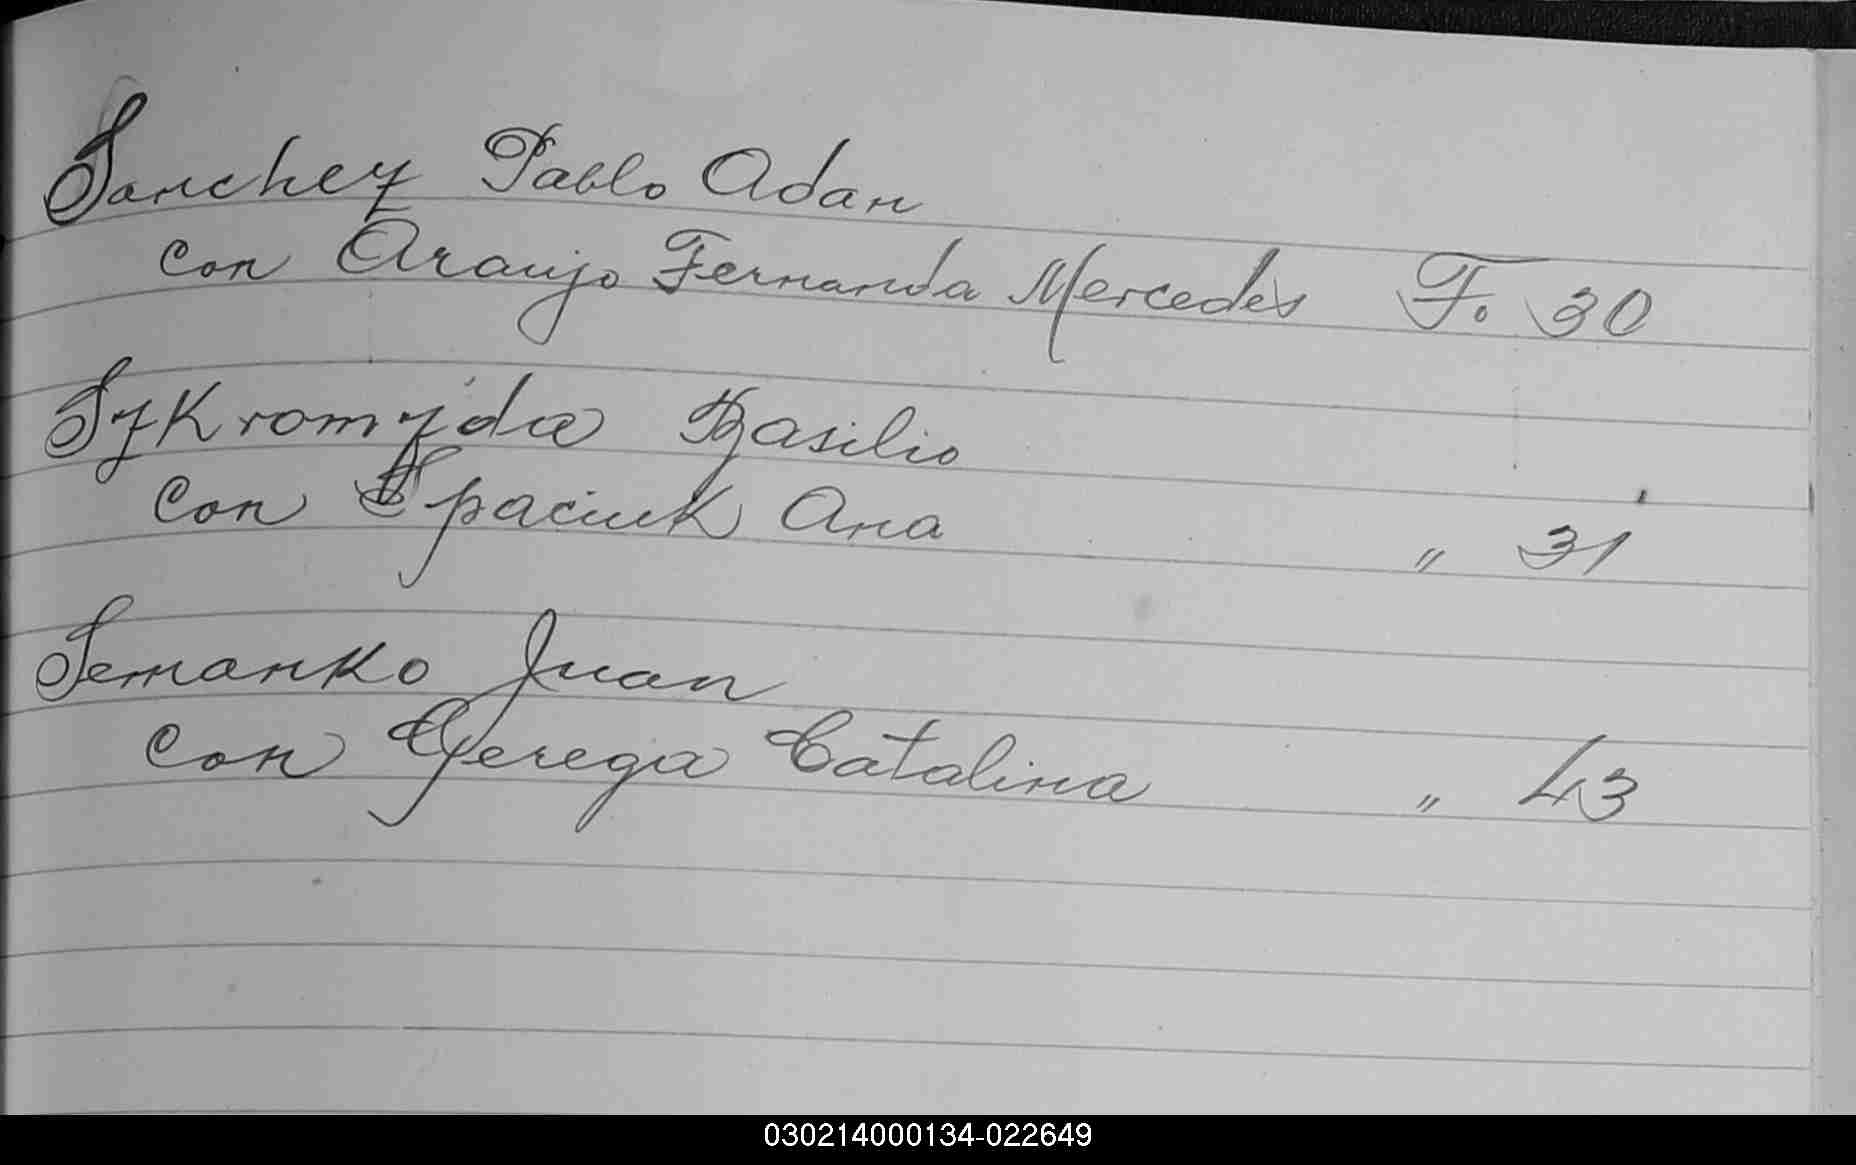 Sanchez Pablo Adan
con Araujo Fernanda Mercedes F. 30
Szkromyda Basilio
con Spaciuk Ana " 31
Semanko Juan
con Gerega Catalina " 43
030214000134-022649